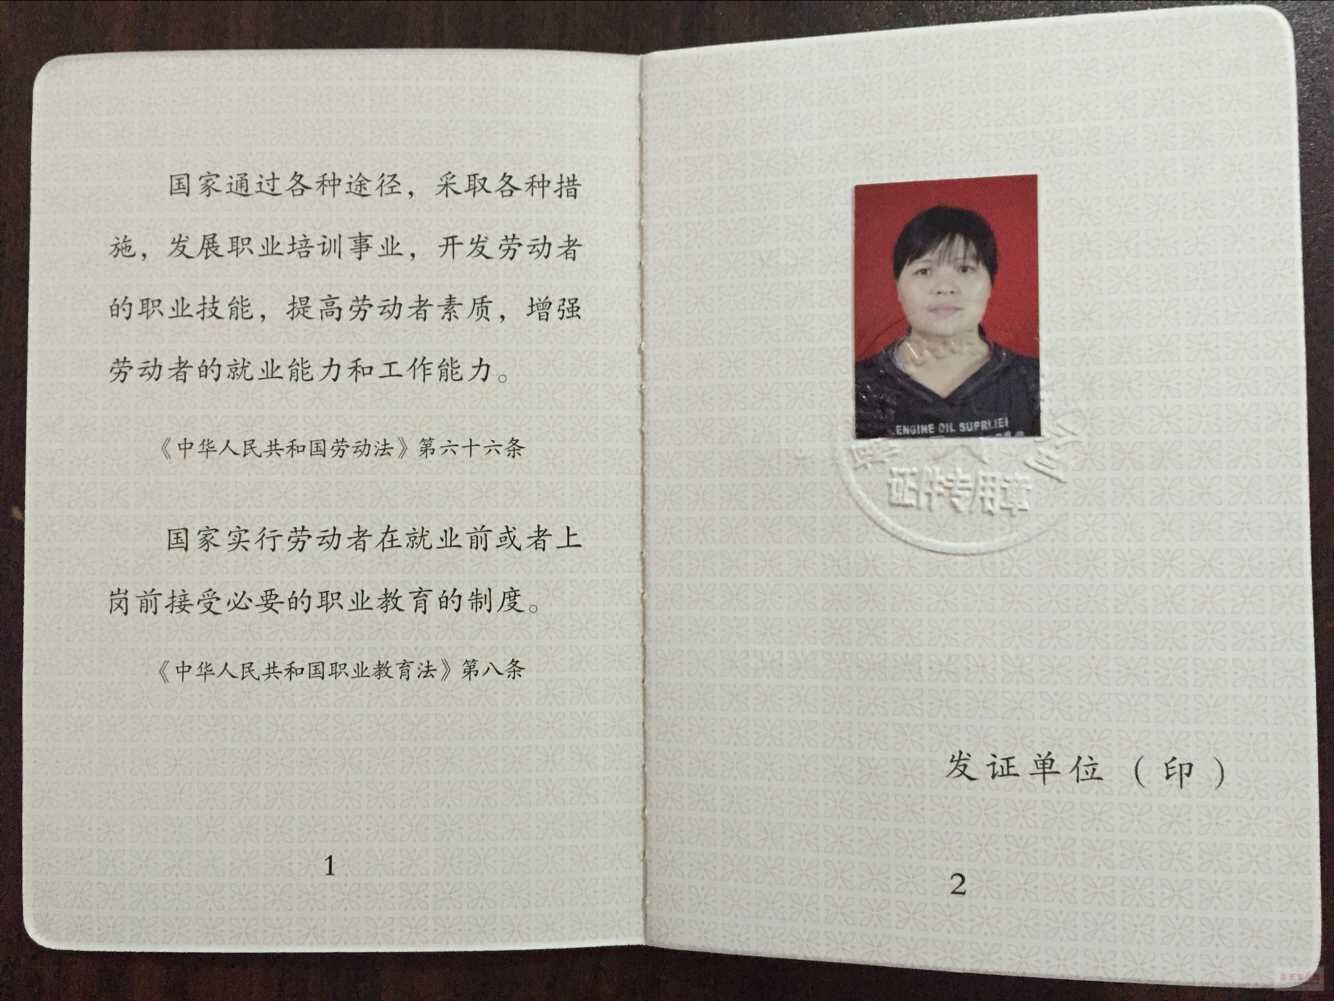 国家通过各种途径，采取各种措
施，发展职业培训事业，开发劳动者
的职业技能，提高劳动者素质，增强
劳动者的就业能力和工作能力。
《中华人民共和国劳动法》第六十六条
国家实行劳动者在就业前或者上
岗前接受必要的职业教育的制度。
《中华人民共和国职业教育法》第八条
1
ENGINE OIL SUPRLIEI
证件专用章
发证单位（印）
2